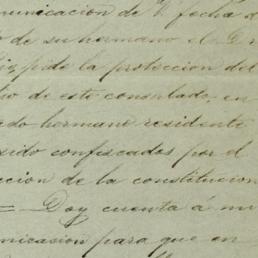 municacion de V. fecha d
de su hermano el D
pide la proteccion del
io de este consulado, en
ado hermano residente
sido confiscados por el
ccion de la constitucion
= Doy cuenta á mi
nicacion para que en